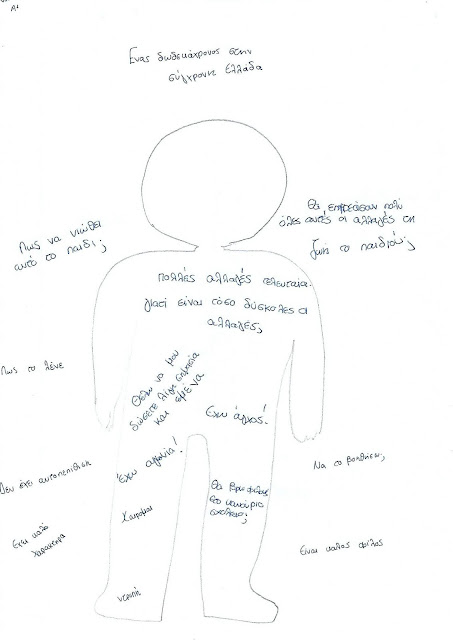 A1
Ένας δωδεκάχρονος στην
σύγχρονη Ελλάδα
Πως να νιώθει
αυτό το παιδί;
Θα επηρεάσουν πολύ
όλες αυτές οι αλλαγές τη
ζωή το παιδιού;
πολλές αλλαγές τελευταία.
Γιατί είναι τόσο δύσκολες οι
αλλαγές;
Πως το λένε
Θέλω να μου
δώσετε λίγη σημασία
και εμένα
Έχω άγχος!
Έχω αγωνία!
Να το βοηθήσω;
Δεν έχει αυτοπεποίθηση
Θα βρω φίλους
στο καινούριο
σχολείο;
Χαίρομαι
Έχει καλό
χαρακτήρα
Είναι καλός φίλος
ντροπή